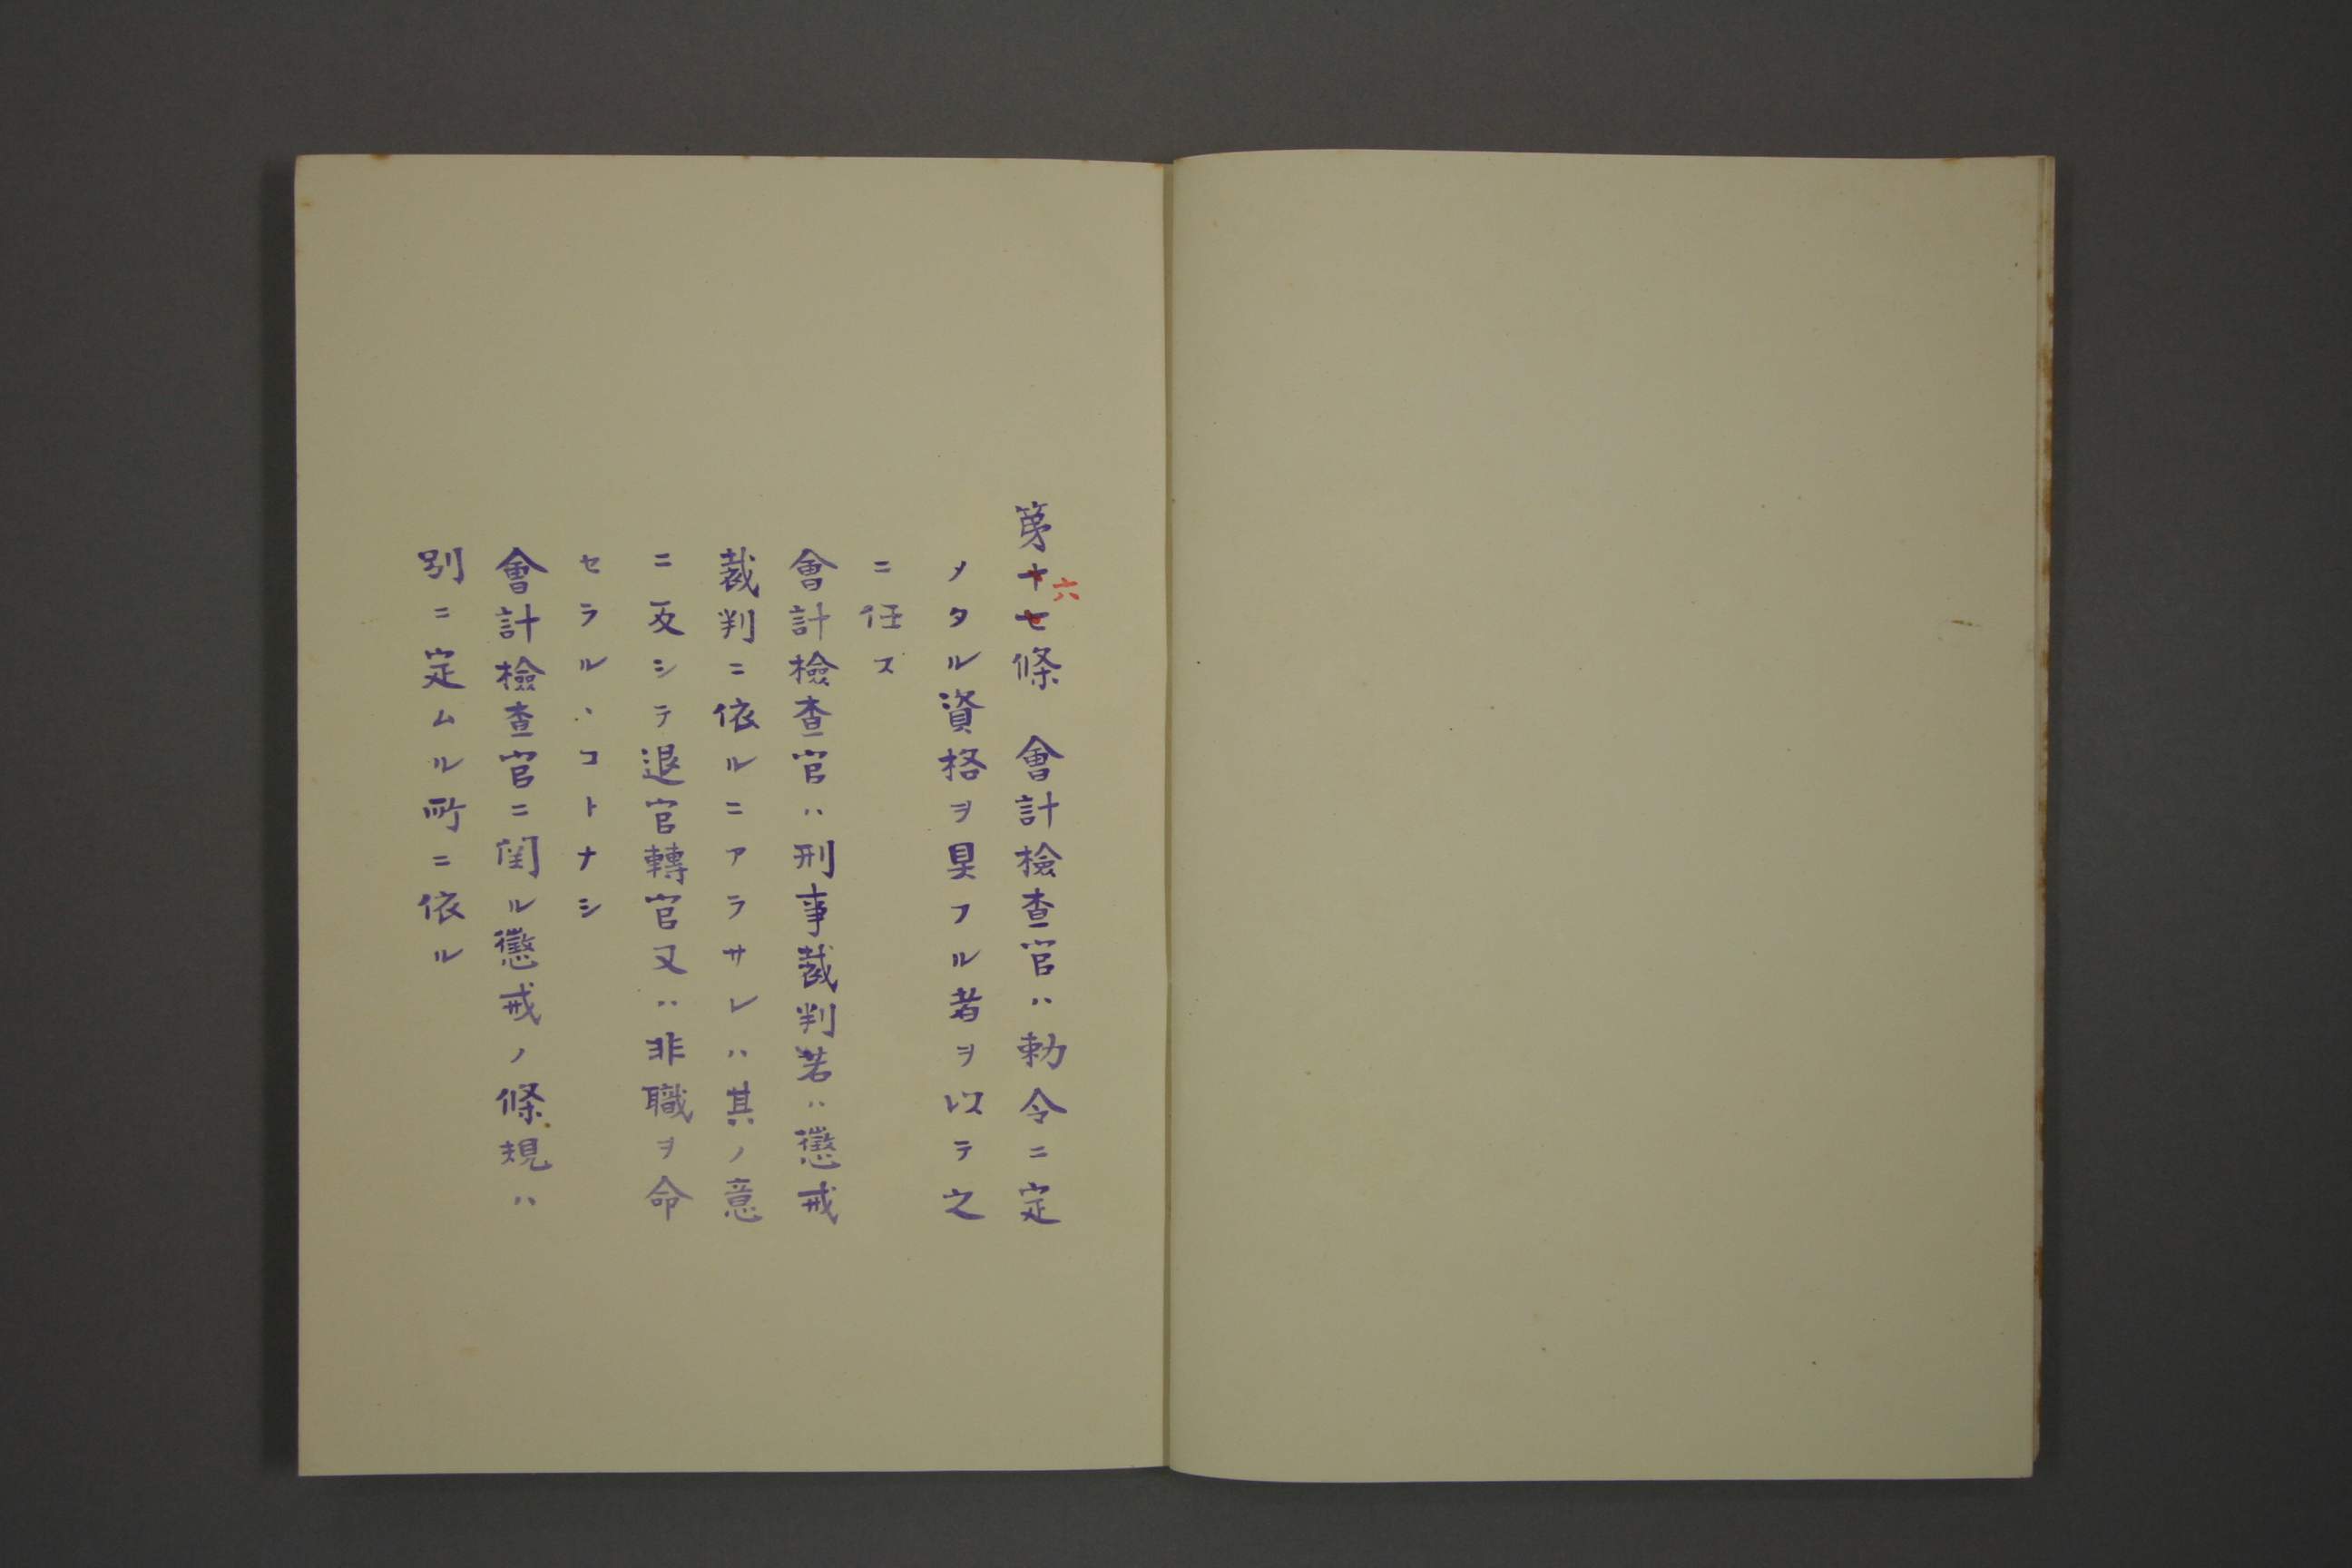 第十七條　會計檢查官ハ勅令ニ定
六
メタル資格ヲ具フル者ヲ以テ之
ニ任ス
會計檢查官ハ刑事裁判若ハ懲戒
裁判ニ依ルニアラサレハ其ノ意
ニ反シテ退官轉官又ハ非職ヲ命
セラルヽコトナシ
會計檢查官ニ関ル懲戒ノ條規ハ
別ニ定ムル所ニ依ル